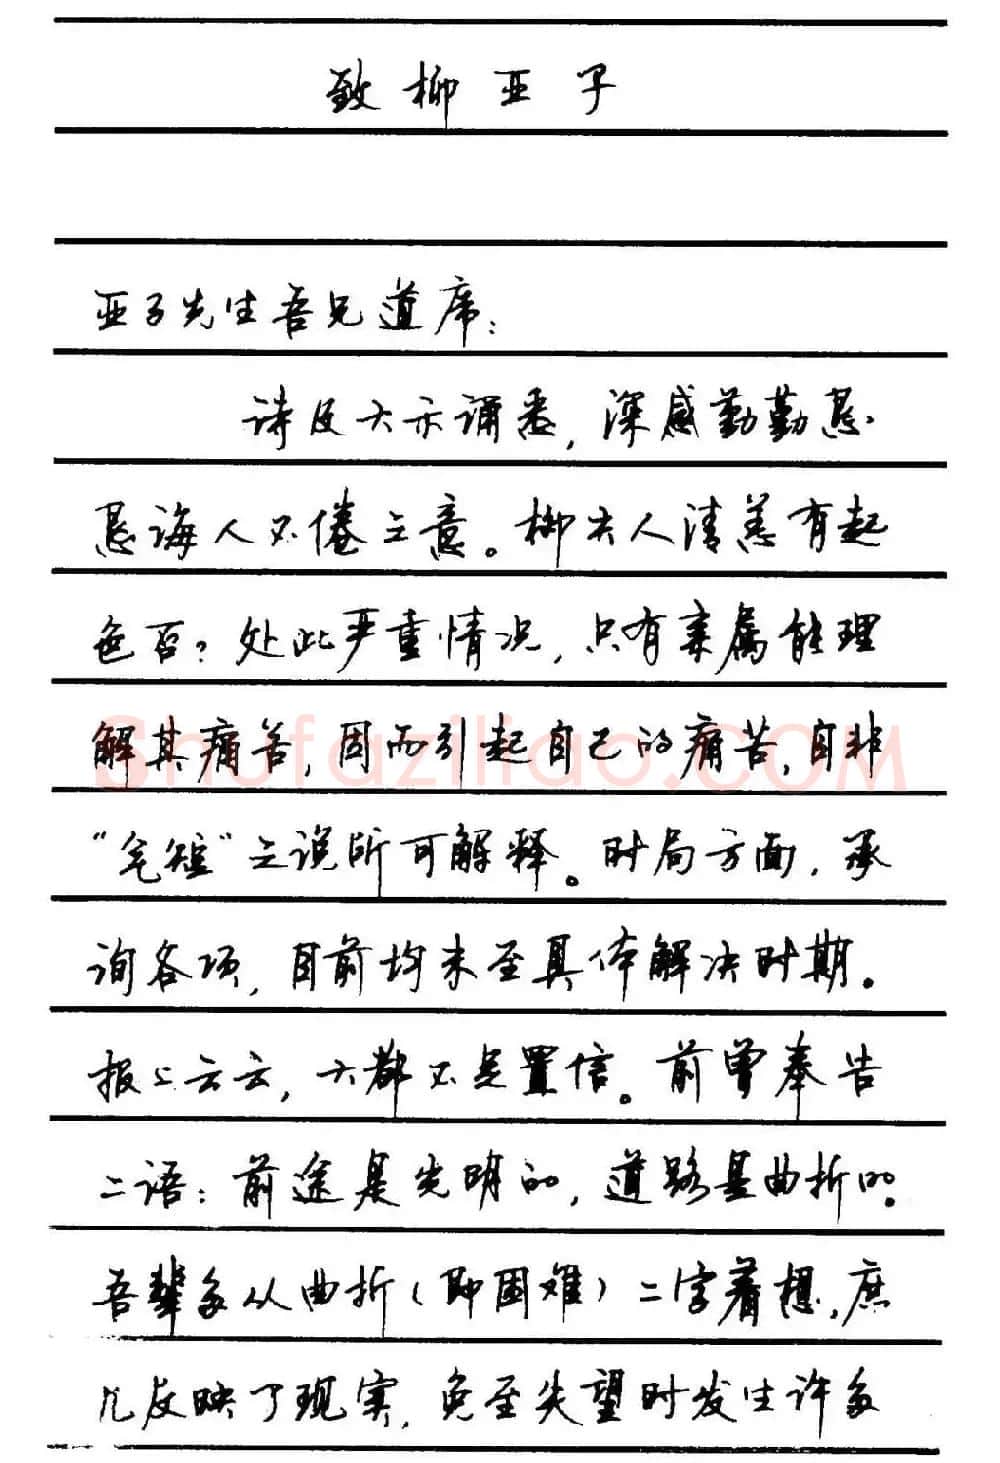 致柳亚子
亚子先生吾兄道席：
诗及大示诵悉，深感勤勤恳
恳诲人不倦之意。柳夫人清恙有起
色否？处此严重情况，只有亲属能理
解其痛苦，因而引起自己的痛苦，自非
“气短”之说所可解释。时局方面，承
询各项，目前均未至具体解决时期。
报上云云，大都不足置信。前曾奉告
二语：前途是光明的，道路是曲折的。
吾辈多从曲折（即困难）二字着想，庶
几反映了现实，免至失望时发生许多
Shufaziliao.COM